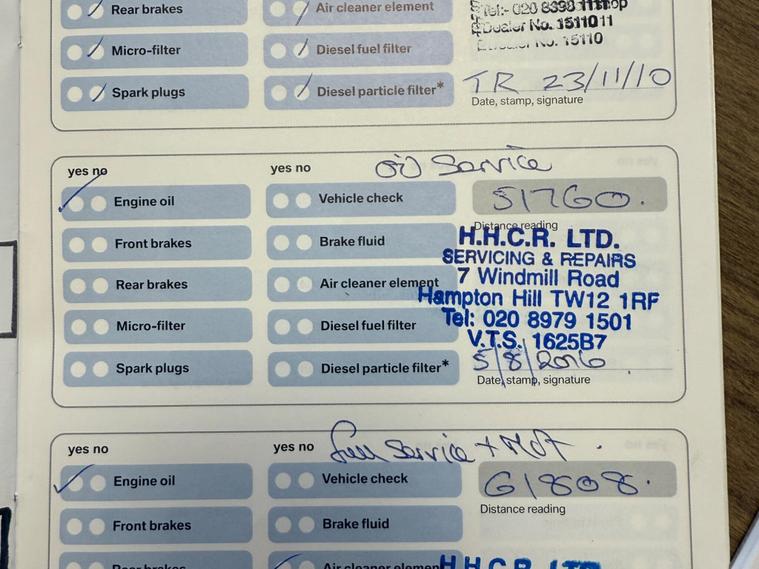 Rear brakes Air cleaner element Tel:- 020 8398 1111
Dealer No. 1511011
Micro-filter Diesel fuel filter 15110
Spark plugs Diesel particle filter* TR 23/11/10
Date, stamp, signature
yes no yes no Oil Service
Engine oil Vehicle check 51760.
Distance reading
Front brakes Brake fluid H.H.C.R. LTD.
SERVICING & REPAIRS
Rear brakes Air cleaner element 7 Windmill Road
Hampton Hill TW12 1RF
Micro-filter Diesel fuel filter Tel: 020 8979 1501
V.T.S. 1625B7
Spark plugs Diesel particle filter* 5/8/2016
Date, stamp, signature
yes no yes no full Service + MOT.
Engine oil Vehicle check 61808.
Distance reading
Front brakes Brake fluid
Rear brakes Air cleaner element H.H.C.R. LTD.